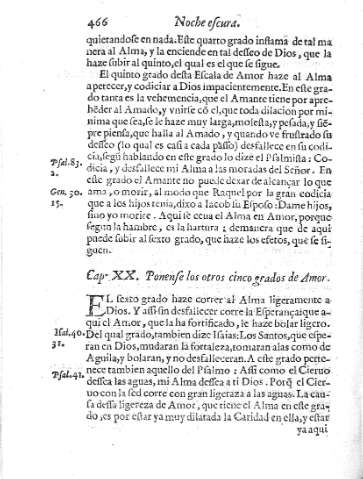 466 Noche escura.
quietandose en nada. Este quarto grado inflama de tal ma
nera al Alma, y la enciende en tal desseo de Dios, que la
haze subir al quinto, el qual es el que se sigue.
El quinto grado desta Escala de Amor haze al Alma
apetecer, y codiciar a Dios impacientemente. En este gra-
do tanta es la vehemencia, que el Amante tiene por apre-
hēder al Amado, y vnirse cō el, que toda dilacion por mi-
nima que sea, se le haze muy larga, molesta, y pesada, y siē-
pre piensa, que halla al Amado, y quando ve frustrado su
desseo (lo qual es casi a cada passo) desfallece en su codi-
cia, segū hablando en este grado lo dize el Psalmista: Co-
Psal. 83. dicia, y desfallece mi Alma a las moradas del Señor. En
2. este grado el Amante no puede dexar de alcançar lo que
Gen. 30. ama, o morir, al modo que Raquel por la gran codicia
15. que a los hijos tenia, dixo a Iacob su Esposo: Dame hijos,
sino yo morire. Aqui se ceua el Alma en Amor, porque
segun la hambre, es la hartura; demanera que de aqui
puede subir al sexto grado, que haze los efetos, que se si-
guen.
Cap. XX. Ponense los otros cinco grados de Amor.
EL sexto grado haze correr al Alma ligeramente a
Dios. Y assi sin desfallecer corre la Esperança; que a-
qui el Amor, que la ha fortificado, le haze bolar ligero.
Isai. 40. Del qual grado, tambien dize Isaias: Los Santos, que espe-
31. ran en Dios, mudaran la fortaleza, tomaran alas como de
Aguila, y bolaran, y no desfalleceran. A este grado perte-
Psal. 41. nece tambien aquello del Psalmo: Assi como el Cieruo
dessea las aguas, mi Alma dessea a ti Dios. Porq̄ el Cier-
uo con la sed corre con gran ligereza a las aguas. La cau-
sa dessa ligereza de Amor, que tiene el Alma en este gra-
do, es por estar ya muy dilatada la Caridad en ella, y estar
ya aqui